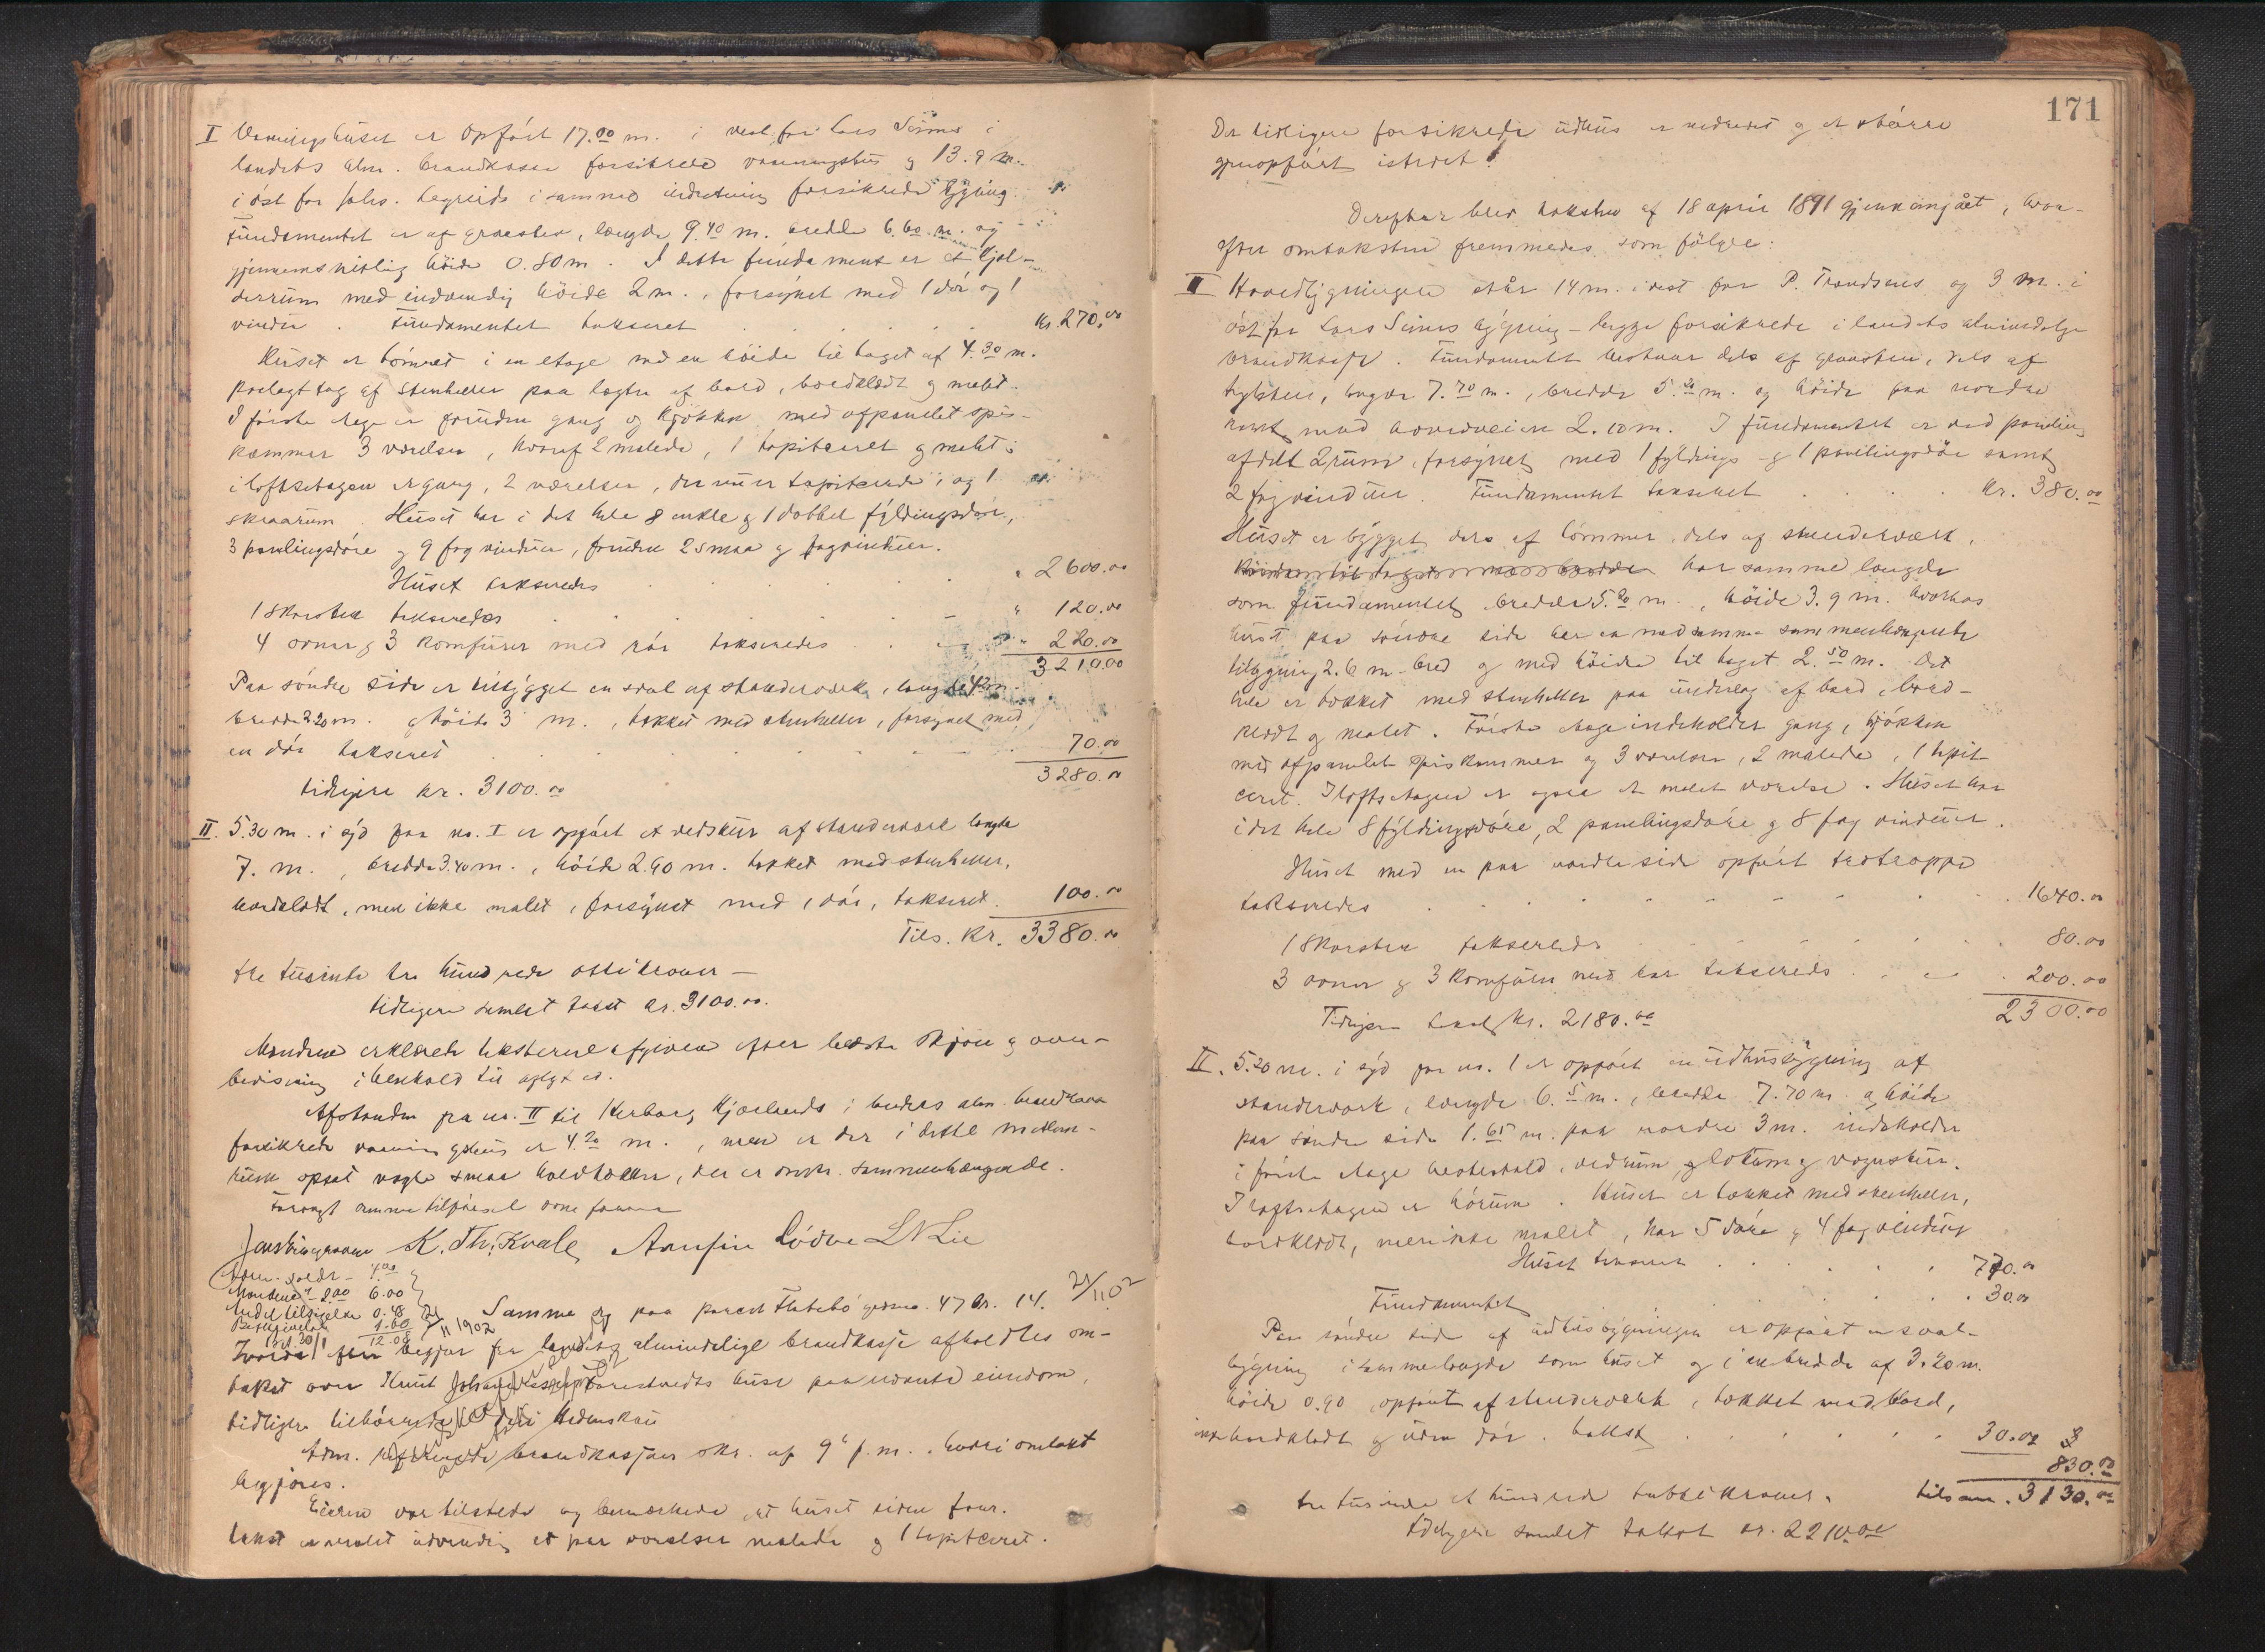 I Vaaningshuset er opført 17.00 m. i vest for Lars Seims i
landets alm. brandkasse forsikrede vaaningshus og 13.9 m.
i øst for Johs. i samme indretning forsikrede bygning.
Fundamentet er af graasten, længde 9.40 m. bredde 6.60 m. og
gjennemsnitlig høide 0.80 m. I dette fundament er et kjel-
derrum med indvendig høide 2 m., forsynet med 1 dør og 1
vindu. Fundamentet takseret kr. 270.00
Huset er tømret i en etage med en høide til taget af 4.30 m.
paalagt tag af stenheller paa lægter af bord, bordklædt og malet.
I første etage er foruden gang og kjøkken med afpanelet spis-
kammer 3 værelser, hvoraf 2 malede, 1 tapitseret og malet;
i loftsetagen er gang, 2 værelser, der nu er tapitserede, og 1
skraarum. Huset har i det hele 8 enkle og 1 dobbel fyldingsdør,
3 panelingsdøre og 9 fag vinduer, foruden 2 smaa fagvinduer.
Huset takseredes " 2600.00
1 Skorsten takseredes " 120.00
4 ovner og 3 komfurer med rør takseredes " 220.00
3210.00
Paa søndre side er tilbygget en sval af standerværk, længde 4.20 m.
bredde 2.20 m. og høide 3 m., tækket med stenheller, forsynet med
en dør takseret 70.00
3280.00
tidligere kr. 3100.00
II. 5.30 m. i syd for no. I er opført et vedskur af standerværk længde
7. m., bredde 3.40 m., høide 2.90 m. tækket med stenheller,
bordklædt, men ikke malet, forsynet med 1 dør, takseret. 100.00
Tils. Kr. 3380.00
tre tusinde tre hundrede otti kroner —
tidligere samlet takst kr. 3100.00.
Mændene erklærede taksterne afgivne efter bedste skjøn og over-
bevisning i henhold til aflagt ed.
Afstanden fra no. II til Herborg Kjærlands i landets alm. brandkasse
forsikrede vaaningshus er 4.20 m., men er der i dette mellem-
rum opsat nogle smaa , der er sammenhængende.
K. Th. Kvale Arnfin Lødve L N Lie
Adm. godt. – 4.00
Mændene à 2.00 6.00
Andel tilsigelse 0.48
1.60
12.08
21/11 1902
Samme dag paa parcel Flatebø gardsno. 47 br. 14. 21/11 02
efter begjær fra landets almindelige brandkasse afholdtes om-
takst over Knut huse paa nævnte eiendom,
tidligere tilhørende
Adm. brandkassens skr. af 9 f. m., hvori omtakst
begjæres.
Eieren var tilstede og bemærkede, at huset siden forr.
takst er malet udvendig et par værelser malede og 1 tapitseret.
171
De tidligere forsikrede udhus er nedrevet og et større
gjenopført istedet.
Derefter blev taksten af 18 april 1891 gjennemgaaet, hvor-
efter omtaksten fremmedes som følger:
I Hovedbygningen staar 14 m. i vest for P. Trondsens og 3 m. i
øst for Lars Seims bygning – begge forsikrede i landets almindelige
brandkasse. Fundamentet bestaar dels af graasten, dels af
teglsten, længde 7.70 m., bredde 5.20 m. og høide paa nordre
kant mod hovedveien 2.10 m. I fundamentet er ved paneling
afdelt 2 rum, forsynet med 1 fyldings- og 1 panelingsdør samt
2 fag vinduer. Fundamentet takseret kr. 380.00
Huset er bygget dels af tømmer, dels af standerværk,
har samme længde
som fundamentet, bredde 5.20 m., høide 3.9 m. hvorhos
huset paa søndre side har en med samme sammenhængende
tilbygning 2.6 m. bred og med høide til taget 2.50 m. Det
hele er tækket med stenheller paa underlag af bord, bord-
klædt og malet. Første etage indeholder gang, kjøkken
med afpanelet spiskammer og 3 værelser, 2 malede, 1 tapit-
ceret. I loftsetagen er ogsaa et malet værelse. Huset har
i det hele 8 fyldingsdøre, 2 panelingsdøre og 8 fag vinduer.
Huset med en paa nordre side opført trætrappe
takseredes 1640.00
1 Skorsten takseredes 80.00
3 ovner og 3 komfurer med rør takseredes 200.00
2300.00
Tidligere takst kr. 2180.00
II. 5.20 m. i syd for no. 1 er opført en udhusbygning af
standerværk, længde 6.5 m., bredde 7.70 m. og høide
paa søndre side 1.65 m. paa nordre 3 m. indeholder
i første etage hestestald, vedrum, og vognskur.
I loftsetagen er høirum. Huset er tækket med stenheller,
bordklædt, men ikke malet, har 5 døre og 4 fag vinduer
Huset takseret 770.00
Fundamentet 30.00
Paa søndre side af udhusbygningen er opført en sval-
bygning i samme længde som huset og i en bredde af 3.20 m.
høide 0.90, opført af standerværk, tækket med bord,
ikke bordklædt og uden dør. takst 30.00
830.00
tre tusinde et hundrede tretti kroner. tilsam. 3130.00
tidligere samlet takst kr. 2210.00